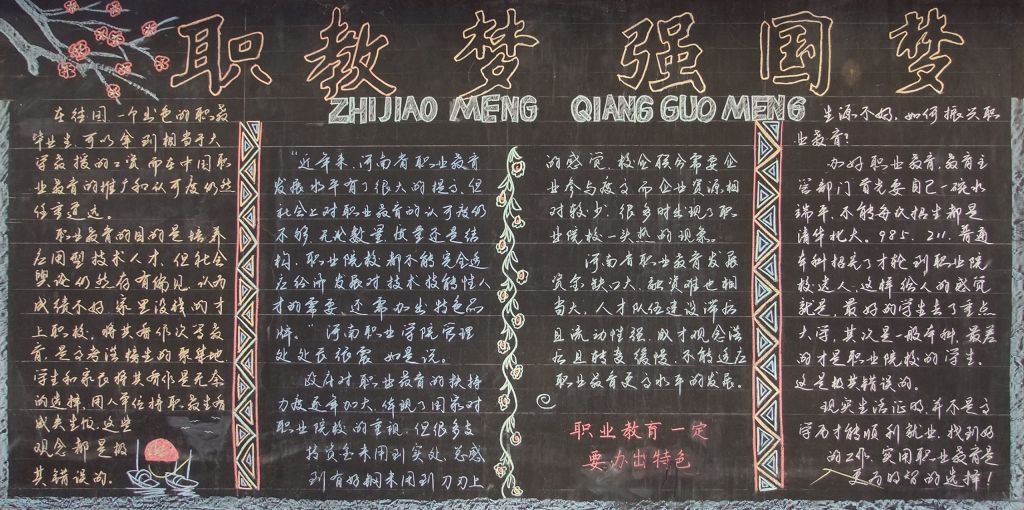 职教梦 强国梦
ZHI JIAO MENG QIANG GUO MENG
在德国,一个出色的职教
毕业生,可以拿到相当于大
学教授的工资,而在中国职
业教育的推广和认可度仍然
任重道远。
职业教育的目的是培养
应用型技术人才,但社会
舆论仍然存有偏见,认为
成绩不好、家里没钱的才
上职校,将其看作次等教
育,是了考生的聚集地,
学生和家长将其看作是无奈
的选择,用人单位将职教生看
成失生版,这些
观念都是极
其错误的。
“近年来,河南省职业教育
发展水平有了很大的提高,但
社会上对职业教育的认可度仍
不够,无论数量、质量还是结
构,职业院校都不能完全适
应经济发展对技术技能性人
才的需要,还需办出特色品
牌。”河南职业学院管理
处处长很震 如是说。
政府对职业教育的扶持
力度逐年加大,体现了国家对
职业院校的重视,但很多支
持资金未用到实处,总感
到有好钢未用到刀刃上
的感觉,校企联合需要企
业参与教育,而企业资源相
对较少,很多时出现了职
业院校一头热的现象。
河南省职业教育发展
资金缺口大,融资难也相
当大,人才队伍建设滞后
且流动性强,成才观念滞
后且转变缓慢,不能适应
职业教育更高水平的发展。
职业教育一定
要办出特色
生源不好,如何振兴职
业教育?
办好职业教育,教育主
管部门首先要自己一碗水
端平,不能每次招生都是
清华北大、985、211、普通
本科招完了才轮到职业院
校选人,这样给人的感觉
就是,最好的学生去了重点
大学,其次是一般本科,最差
的才是职业院校的学生,
这是极其错误的。
现实生活证明,并不是高
学历才能顺利就业、找到好
的工作,实用职业教育是
更为明智的选择!